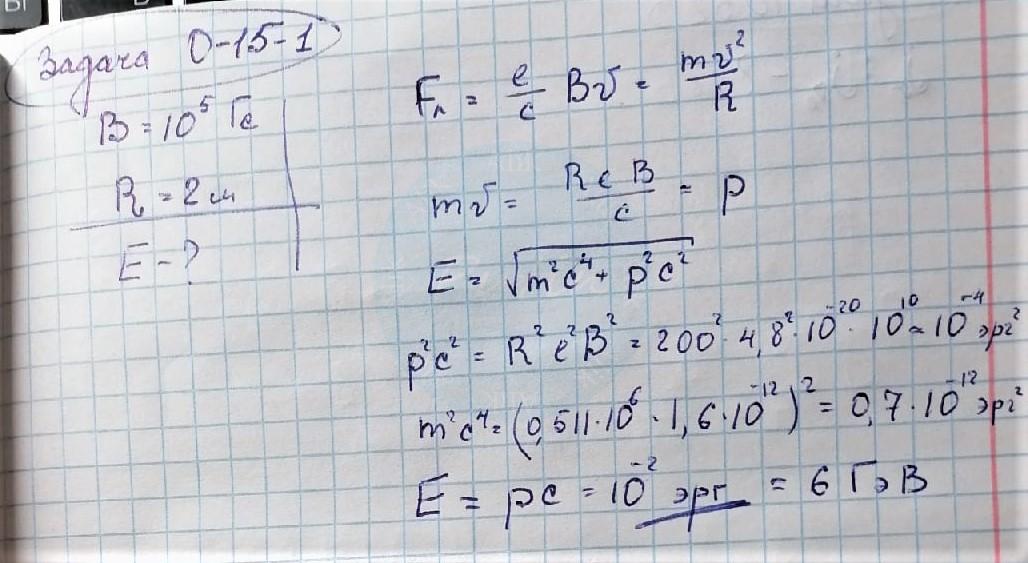 Задача 0-15-1
B = 10⁵ Гс
R = 2 м
E - ?
Fл = e/c Bv = mv²/R
mv = ReB/c = p
E = √(m²c⁴ + p²c²)
p²c² = R²e²B² = 200² · 4,8² · 10⁻²⁰ · 10¹⁰ ≈ 10⁻⁴ эрг²
m²c⁴ = (0,511 · 10⁶ · 1,6 · 10⁻¹²)² = 0,7 · 10⁻¹² эрг²
E = pc = 10⁻² эрг = 6 ГэВ